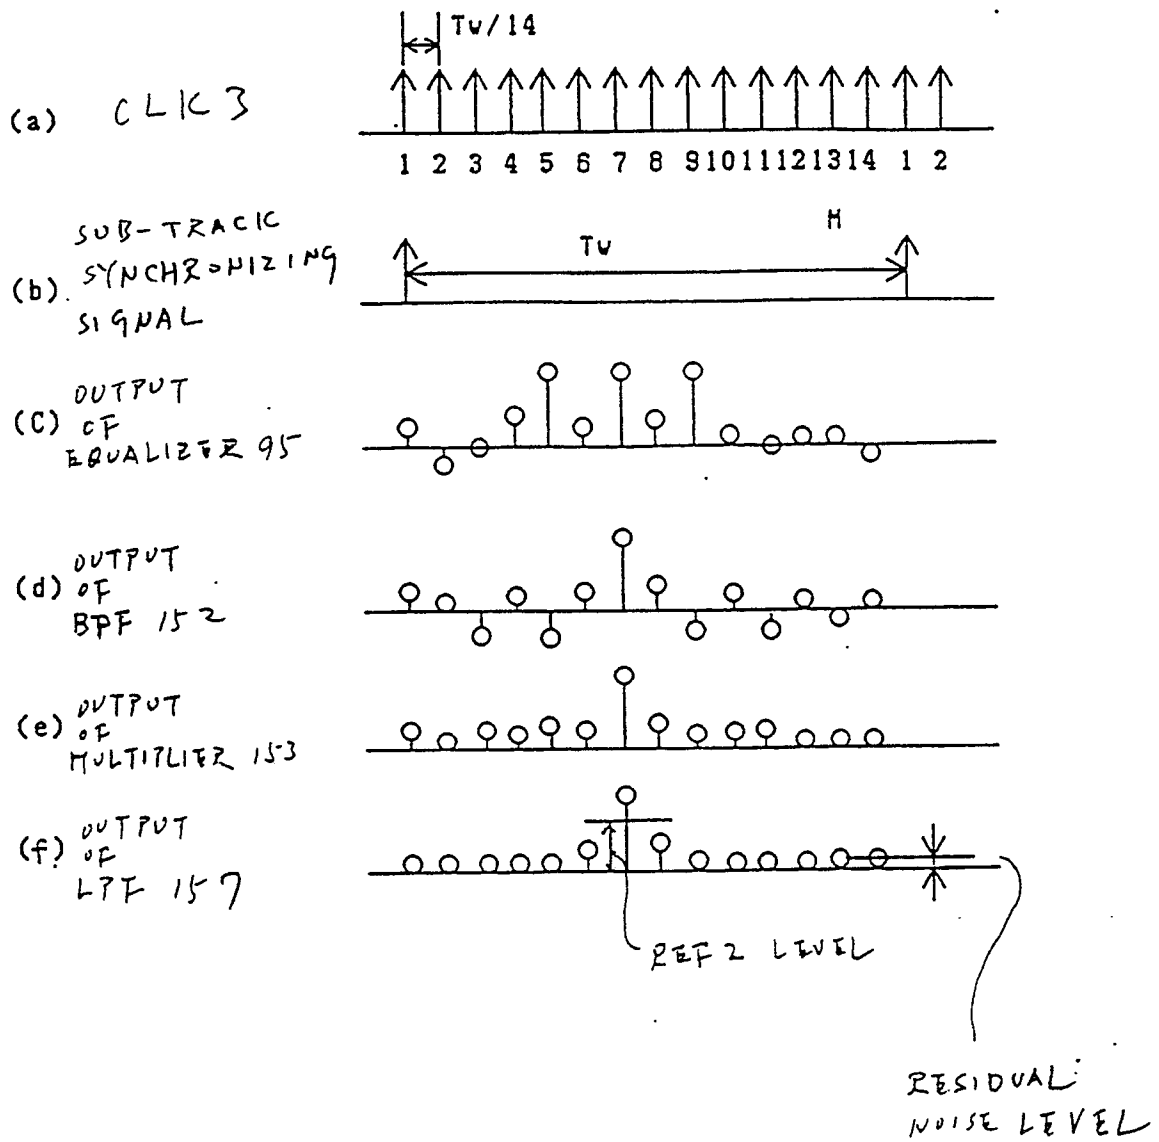 Tw/14
(a) CLK3
1 2 3 4 5 6 7 8 9 10 11 12 13 14 1 2
(b) SUB-TRACK
SYNCHRONIZING
SIGNAL
Tw
M
(C) OUTPUT
OF
EQUALIZER 95
(d) OUTPUT
OF
BPF 152
(e) OUTPUT
OF
MULTIPLIER 153
(f) OUTPUT
OF
LPF 157
REF 2 LEVEL
RESIDUAL
NOISE LEVEL